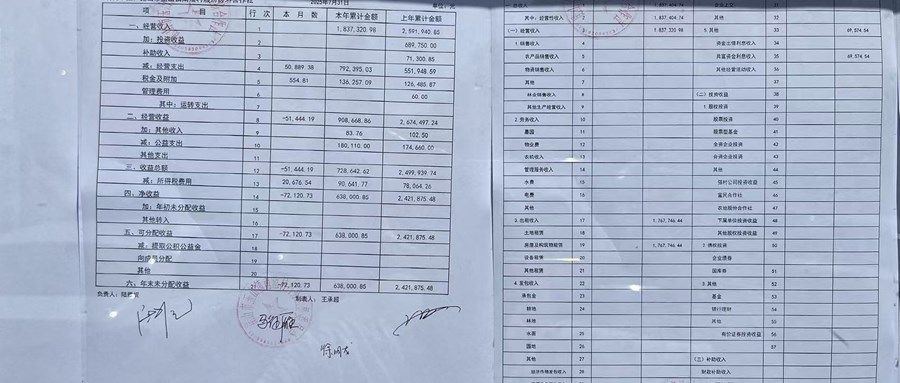 2025年7月31日 单位：元
项 目 行次 本月数 本年累计金额 上年累计金额
一、经营收入 1 1,837,320.98 2,591,942.85
加：投资收益 2 689,750.00
补助收入 3 71,300.85
减：经营支出 4 50,889.38 792,395.03 551,948.59
税金及附加 5 554.81 136,257.09 126,485.87
管理费用 6 60.00
其中：运转支出 7
二、经营收益 8 -51,444.19 908,668.86 2,674,497.24
加：其他收入 9 83.76 102.50
减：公益支出 10 180,110.00 174,660.00
其他支出 11
三、收益总额 12 -51,444.19 728,642.62 2,499,939.74
减：所得税费用 13 20,676.54 90,641.77 78,064.26
四、净收益 14 -72,120.73 638,000.85 2,421,875.48
加：年初未分配收益 15
其他转入 16
五、可分配收益 17 -72,120.73 638,000.85 2,421,875.48
减：提取公积公益金 18
向成员分配 19
其他 20
六、年末未分配收益 21 -72,120.73 638,000.85 2,421,875.48
负责人： 制表人：王承超
其中：经营性收入 2 1,837,404.74 其他 32
(一) 经营收入 3 1,837,320.98 5.其他 33 69,574.54
1.销售收入 4 资金占用利息收入 34
农产品销售收入 5 共富资金利息收入 35 69,574.54
物资销售收入 6 其他经营活动收入 36
其他 7 37
8 (二) 投资收益 38
其他生产经营收入 9 1.股权投资 39
2.劳务收入 10 股票投资 40
11 股票型基金 41
物业费 12 全资企业投资 42
农机收入 13 合资企业投资 43
管理服务收入 14 其他 44
水费 15 强村公司投资收益 45
电费 16 富民合作社 46
其他 17 农地股份合作社 47
3.出租收入 17 1,767,746.44 下属单位投资收益 48
土地租赁 18 其他股权投资收益 49
房屋及构筑物租赁 19 1,767,746.44 2.债权投资 50
设备租赁 20 企业债券
其他租赁 21 国库券 51
4.发包收入 22 3.其他 52
承包金 23 基金 53
耕地 24 银行理财 54
林地 其他 55
水面 26 有价证券投资收益 56
园地 26 57
其他 27 (三) 补助收入
28 财政补助收入